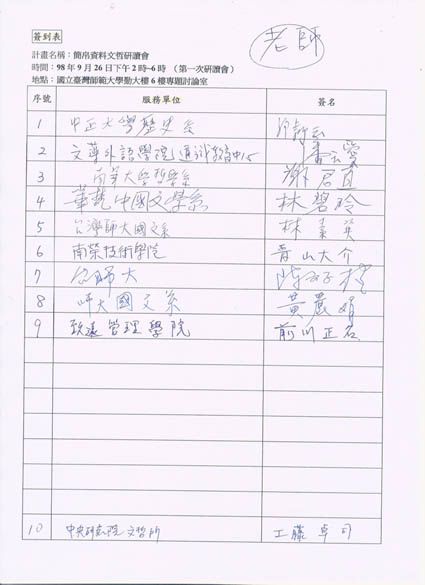 簽到表
老師
計畫名稱：簡帛資料文哲研讀會
時間：98 年 9 月 26 日下午 2 時~6 時 （第一次研讀會）
地點：國立臺灣師範大學勤大樓 6 樓專題討論室
序號 服務單位 簽名
1 中正大學歷史系
2 文藻外語學院通識教育中心
3 南華大學哲學系
4 華梵中國文學系 林碧玲
5 台灣師大國文系 林素英
6 南榮技術學院 青山大介
7 台師大
8 師大國文系 黃麗娟
9 致遠管理學院 前川正名
10 中央研究院文哲所 工藤卓司